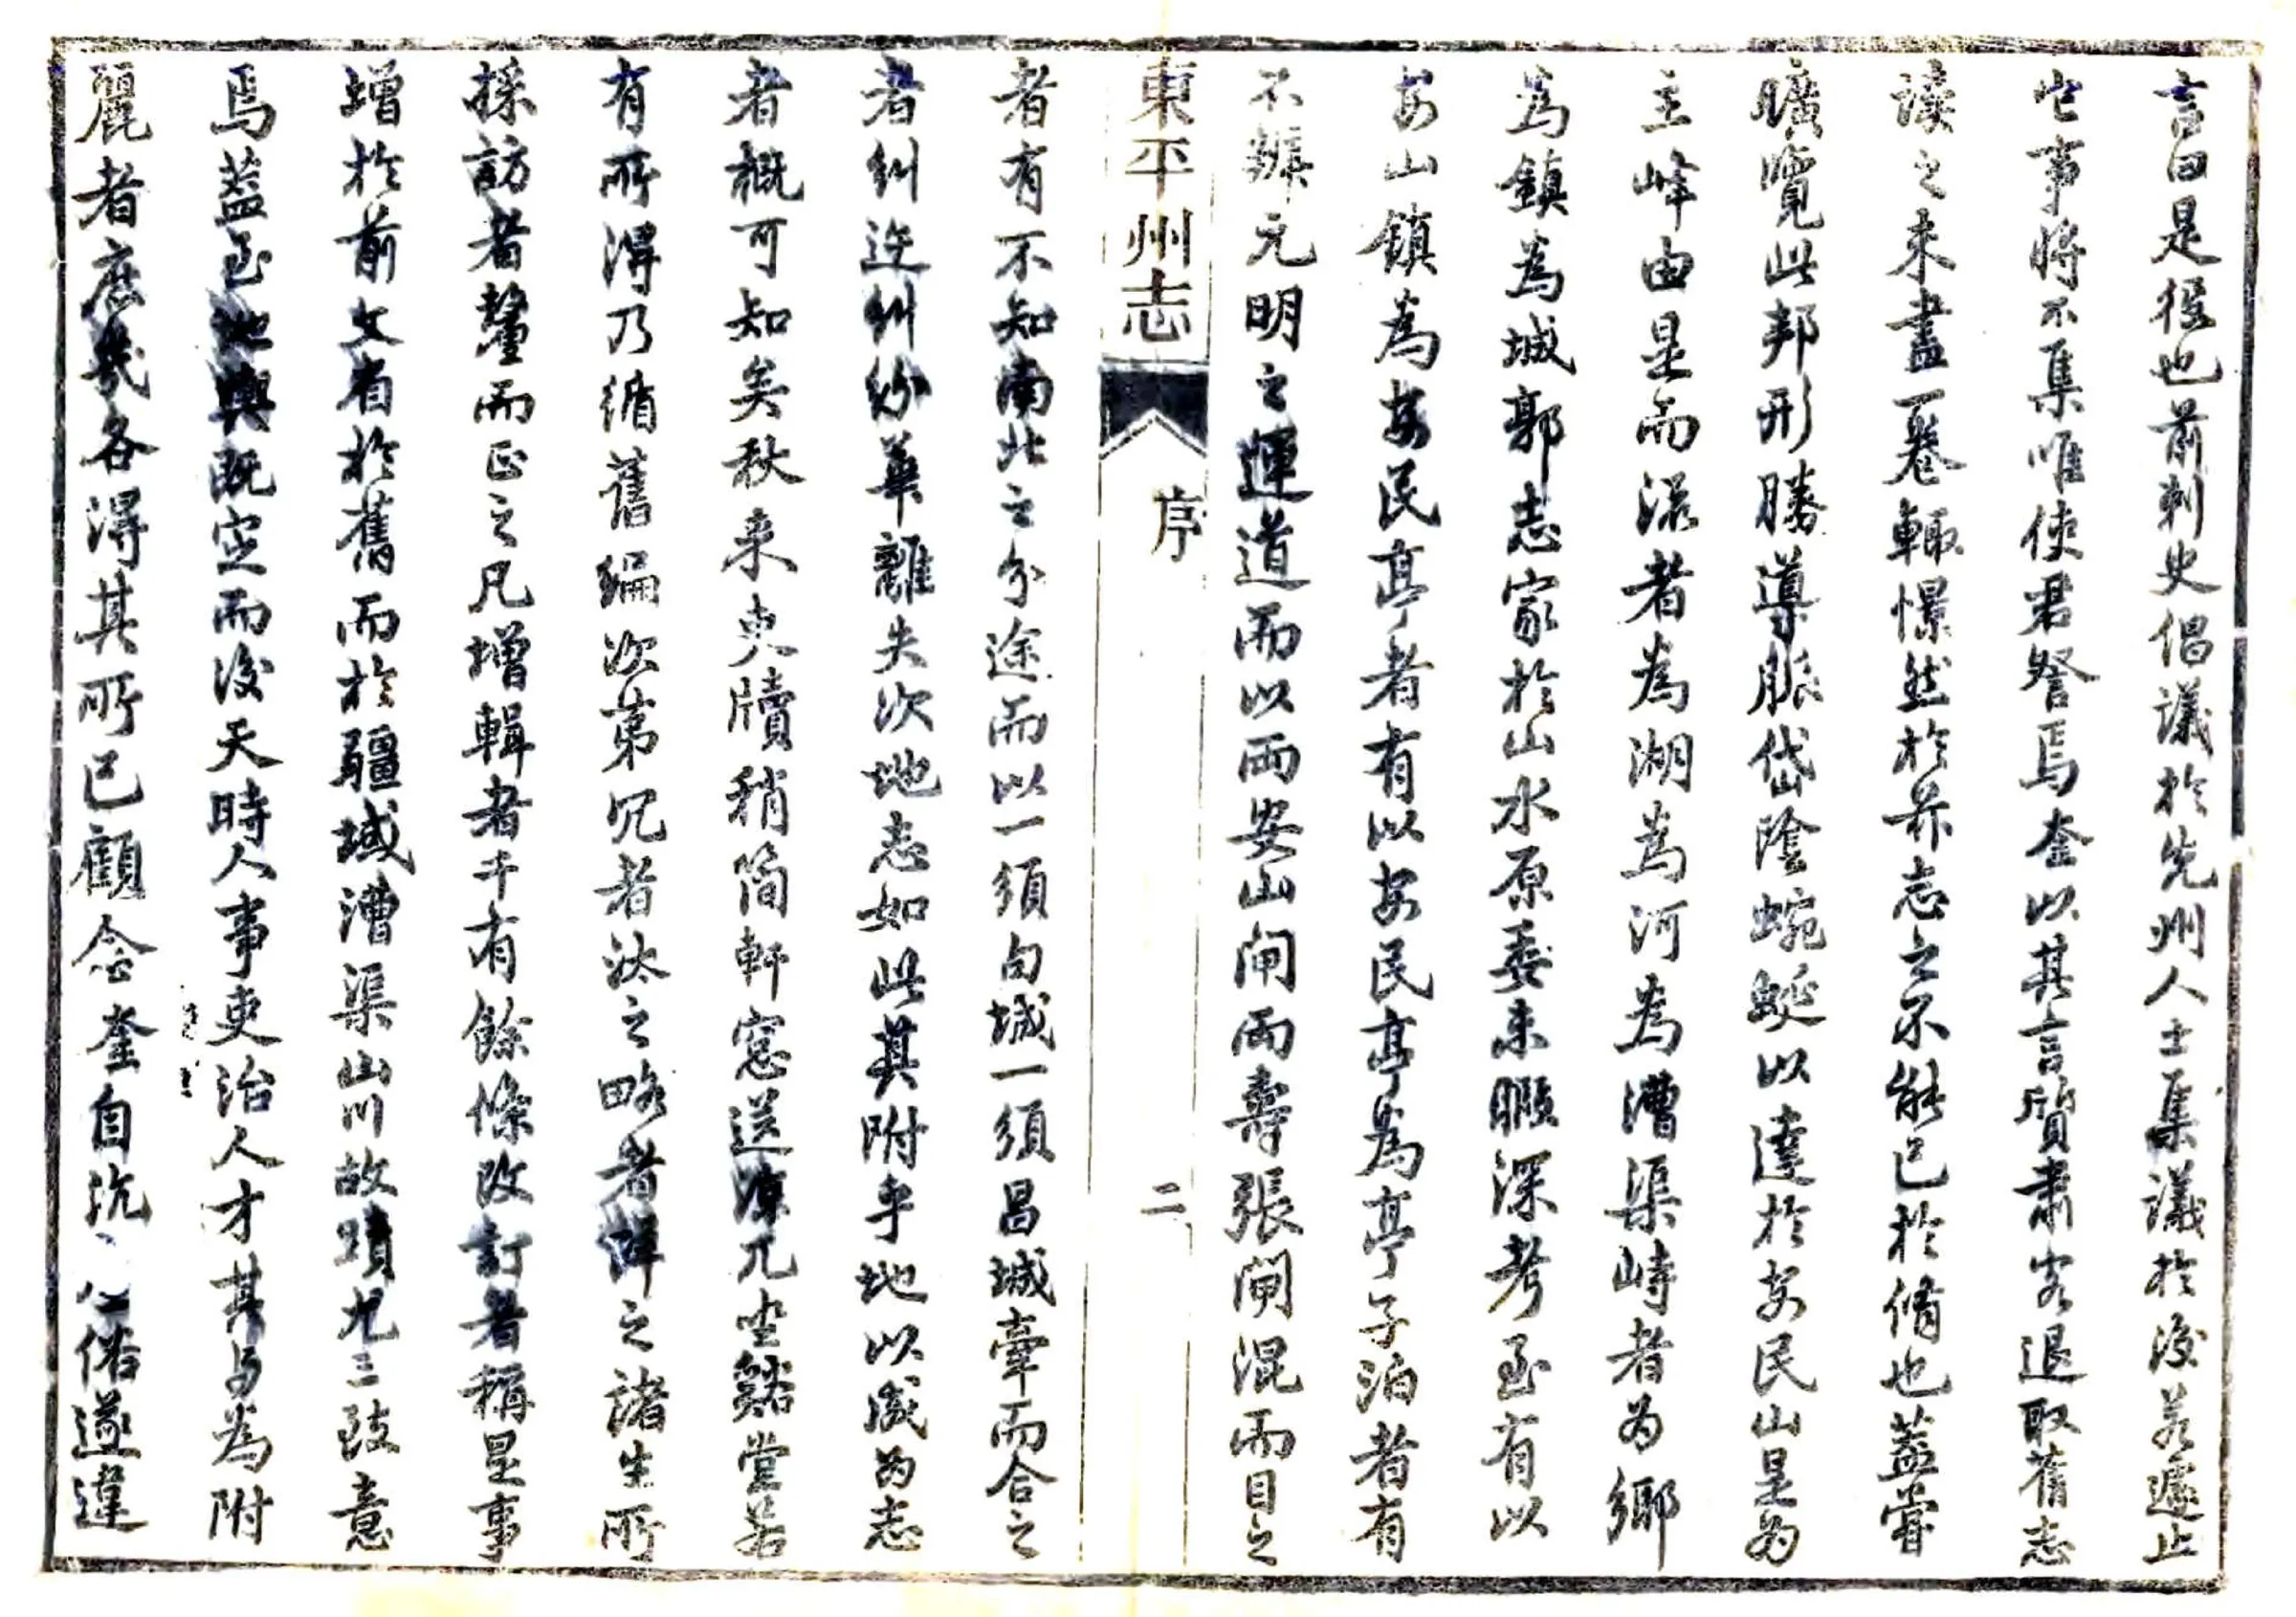 言曰是役也前刺史倡議於先州人士集議於後若遽止
它事將不集唯使君督焉奎以其言質肅客退取舊志
讀之未盡一卷輒憬然於前志之不能已於脩也蓋嘗
曠覽此邦形勝導脈岱陰蜿蜒以達於安民山是為
主峰由是而流者為湖為河為漕渠峙者為鄉
為鎮為城郭志家於山水原委未暇深考至有以
安山鎮為安民亭者有以安民亭為亭子泊者有
不辨元明之運道而以兩安山閘兩壽張閘混而目之
東平州志
序
二
者有不知南北之分途而以一須句城一須昌城牽而合之
者糾迕糾紛華離失次地志如此其附乎地以成為志
者概可知矣秋來吏牘稍簡軒窓送涼兀坐谿堂若
有所得乃循舊編次第冗者汰之略者詳之諸生所
採訪者釐而正之凡增輯者千有餘條改訂者稱是事
增於前文省於舊而於疆域漕渠山川故蹟尤三致意
焉蓋至地輿既定而後天時人事吏治人才其與為附
麗者庶幾各得其所已顧念奎自沆俗遂違